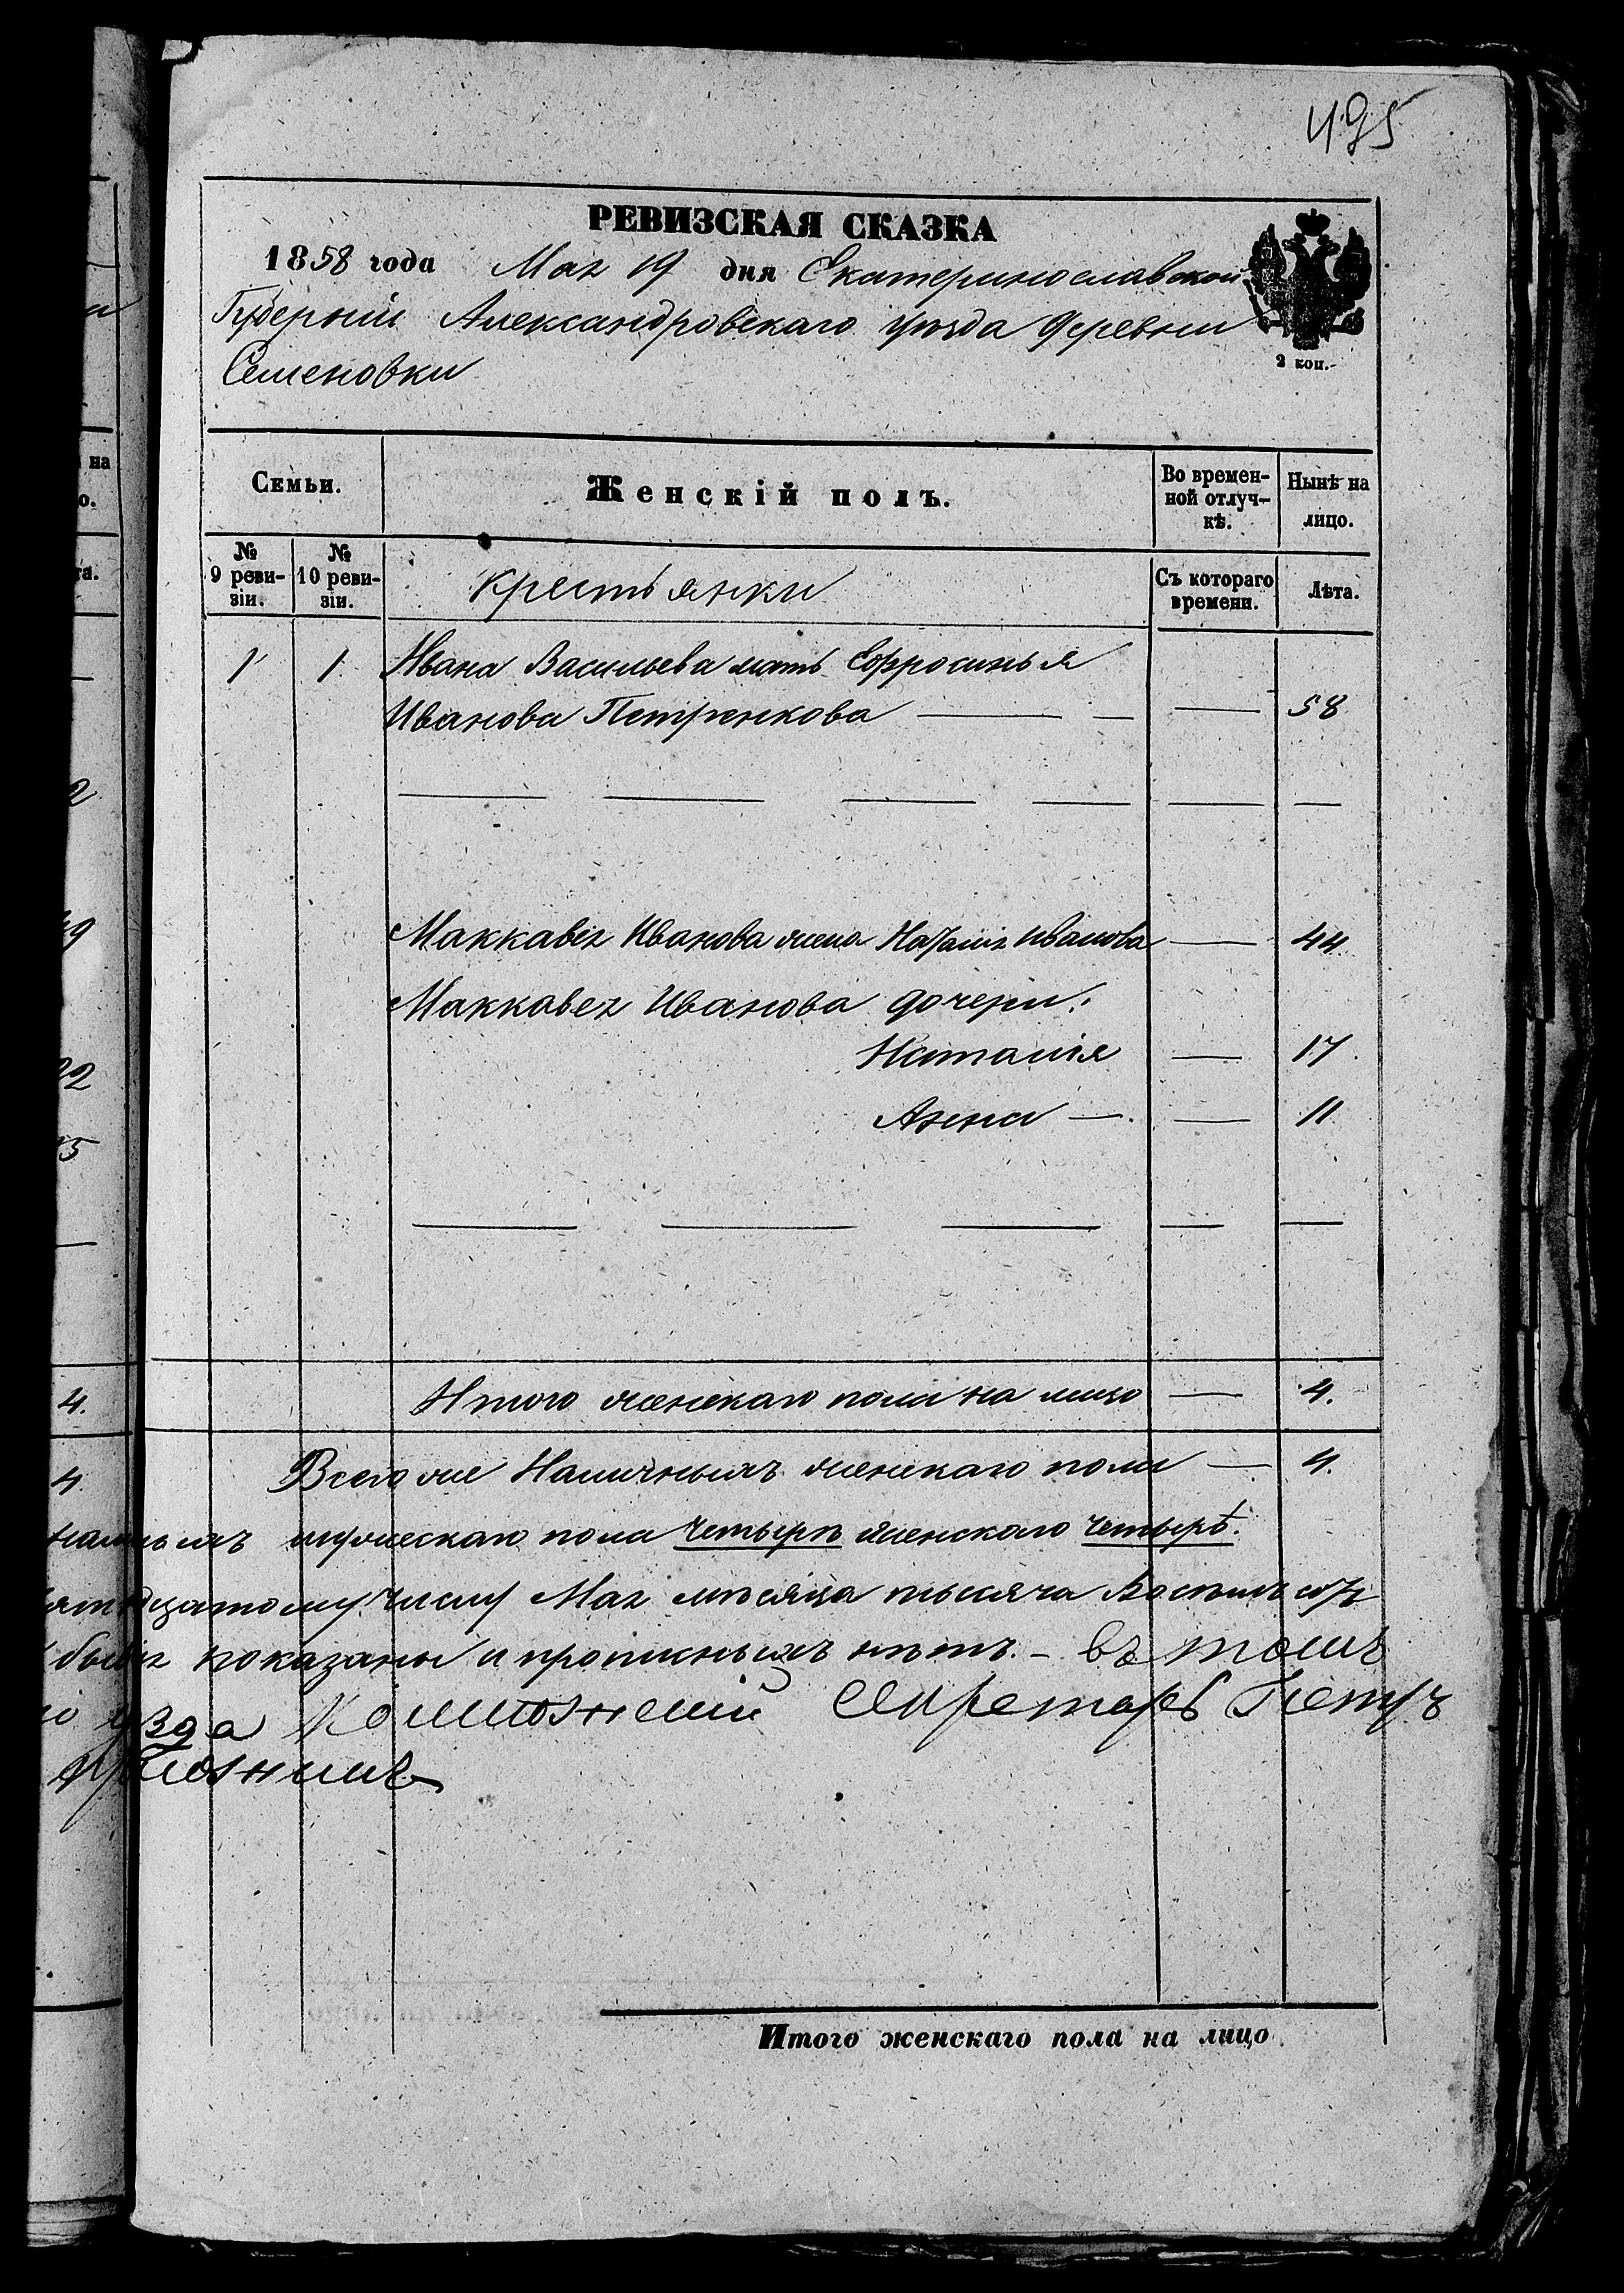 495
РЕВИЗСКАЯ СКАЗКА
1858 года Мая 19 дня Екатеринославской
Губерніи Александровскаго уѣзда деревни
Семеновки
2 коп.
Семьи.
Женскій полъ.
Во времен-
ной отлуч-
кѣ.
Нынѣ на
лицо.
№
9 реви-
зіи.
№
10 реви-
зіи.
Крестьянки
Съ котораго
времени.
Лѣта.
1 1 Ивана Васильева мать Ефросинья
Иванова Петренкова — — — 58
Маккавея Иванова жена Наталія Иванова — 44
Маккавея Иванова дочери:
Наталія — 17
Анна — — 11
Итого женскаго пола на лицо — 4.
Всего же Наличныхъ женскаго пола — 4.
мужескаго пола Четырѣ женскаго четырѣ.
числу Мая мѣсяца тысяча Восемь сотъ
показаны и прописныхъ нѣтъ. – въ томъ
Секретарь Петръ
Итого женскаго пола на лицо
на
о.
та.
2
22
4.
4